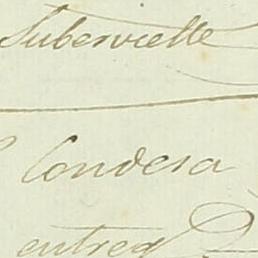 Subervielle
Condesa
entreg